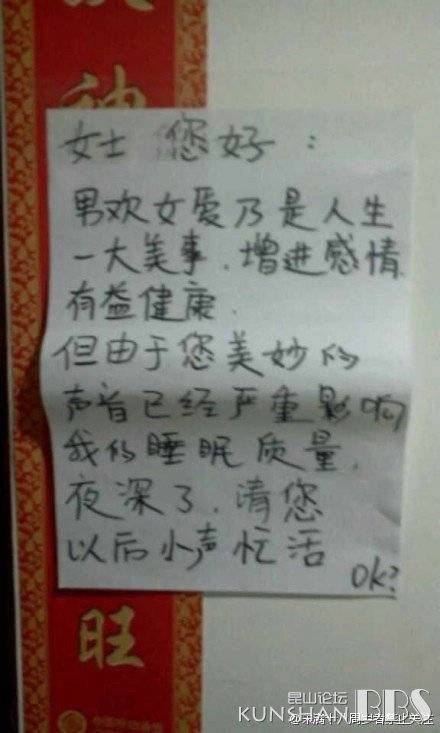 神
女士 您好：
男欢女爱乃是人生
一大美事．增进感情
有益健康．
但由于您美妙的
声音已经严重影响
我的睡眠质量．
夜深了．请您
以后小声忙活
OK?
旺
昆山论坛
KUNSHAN BBS